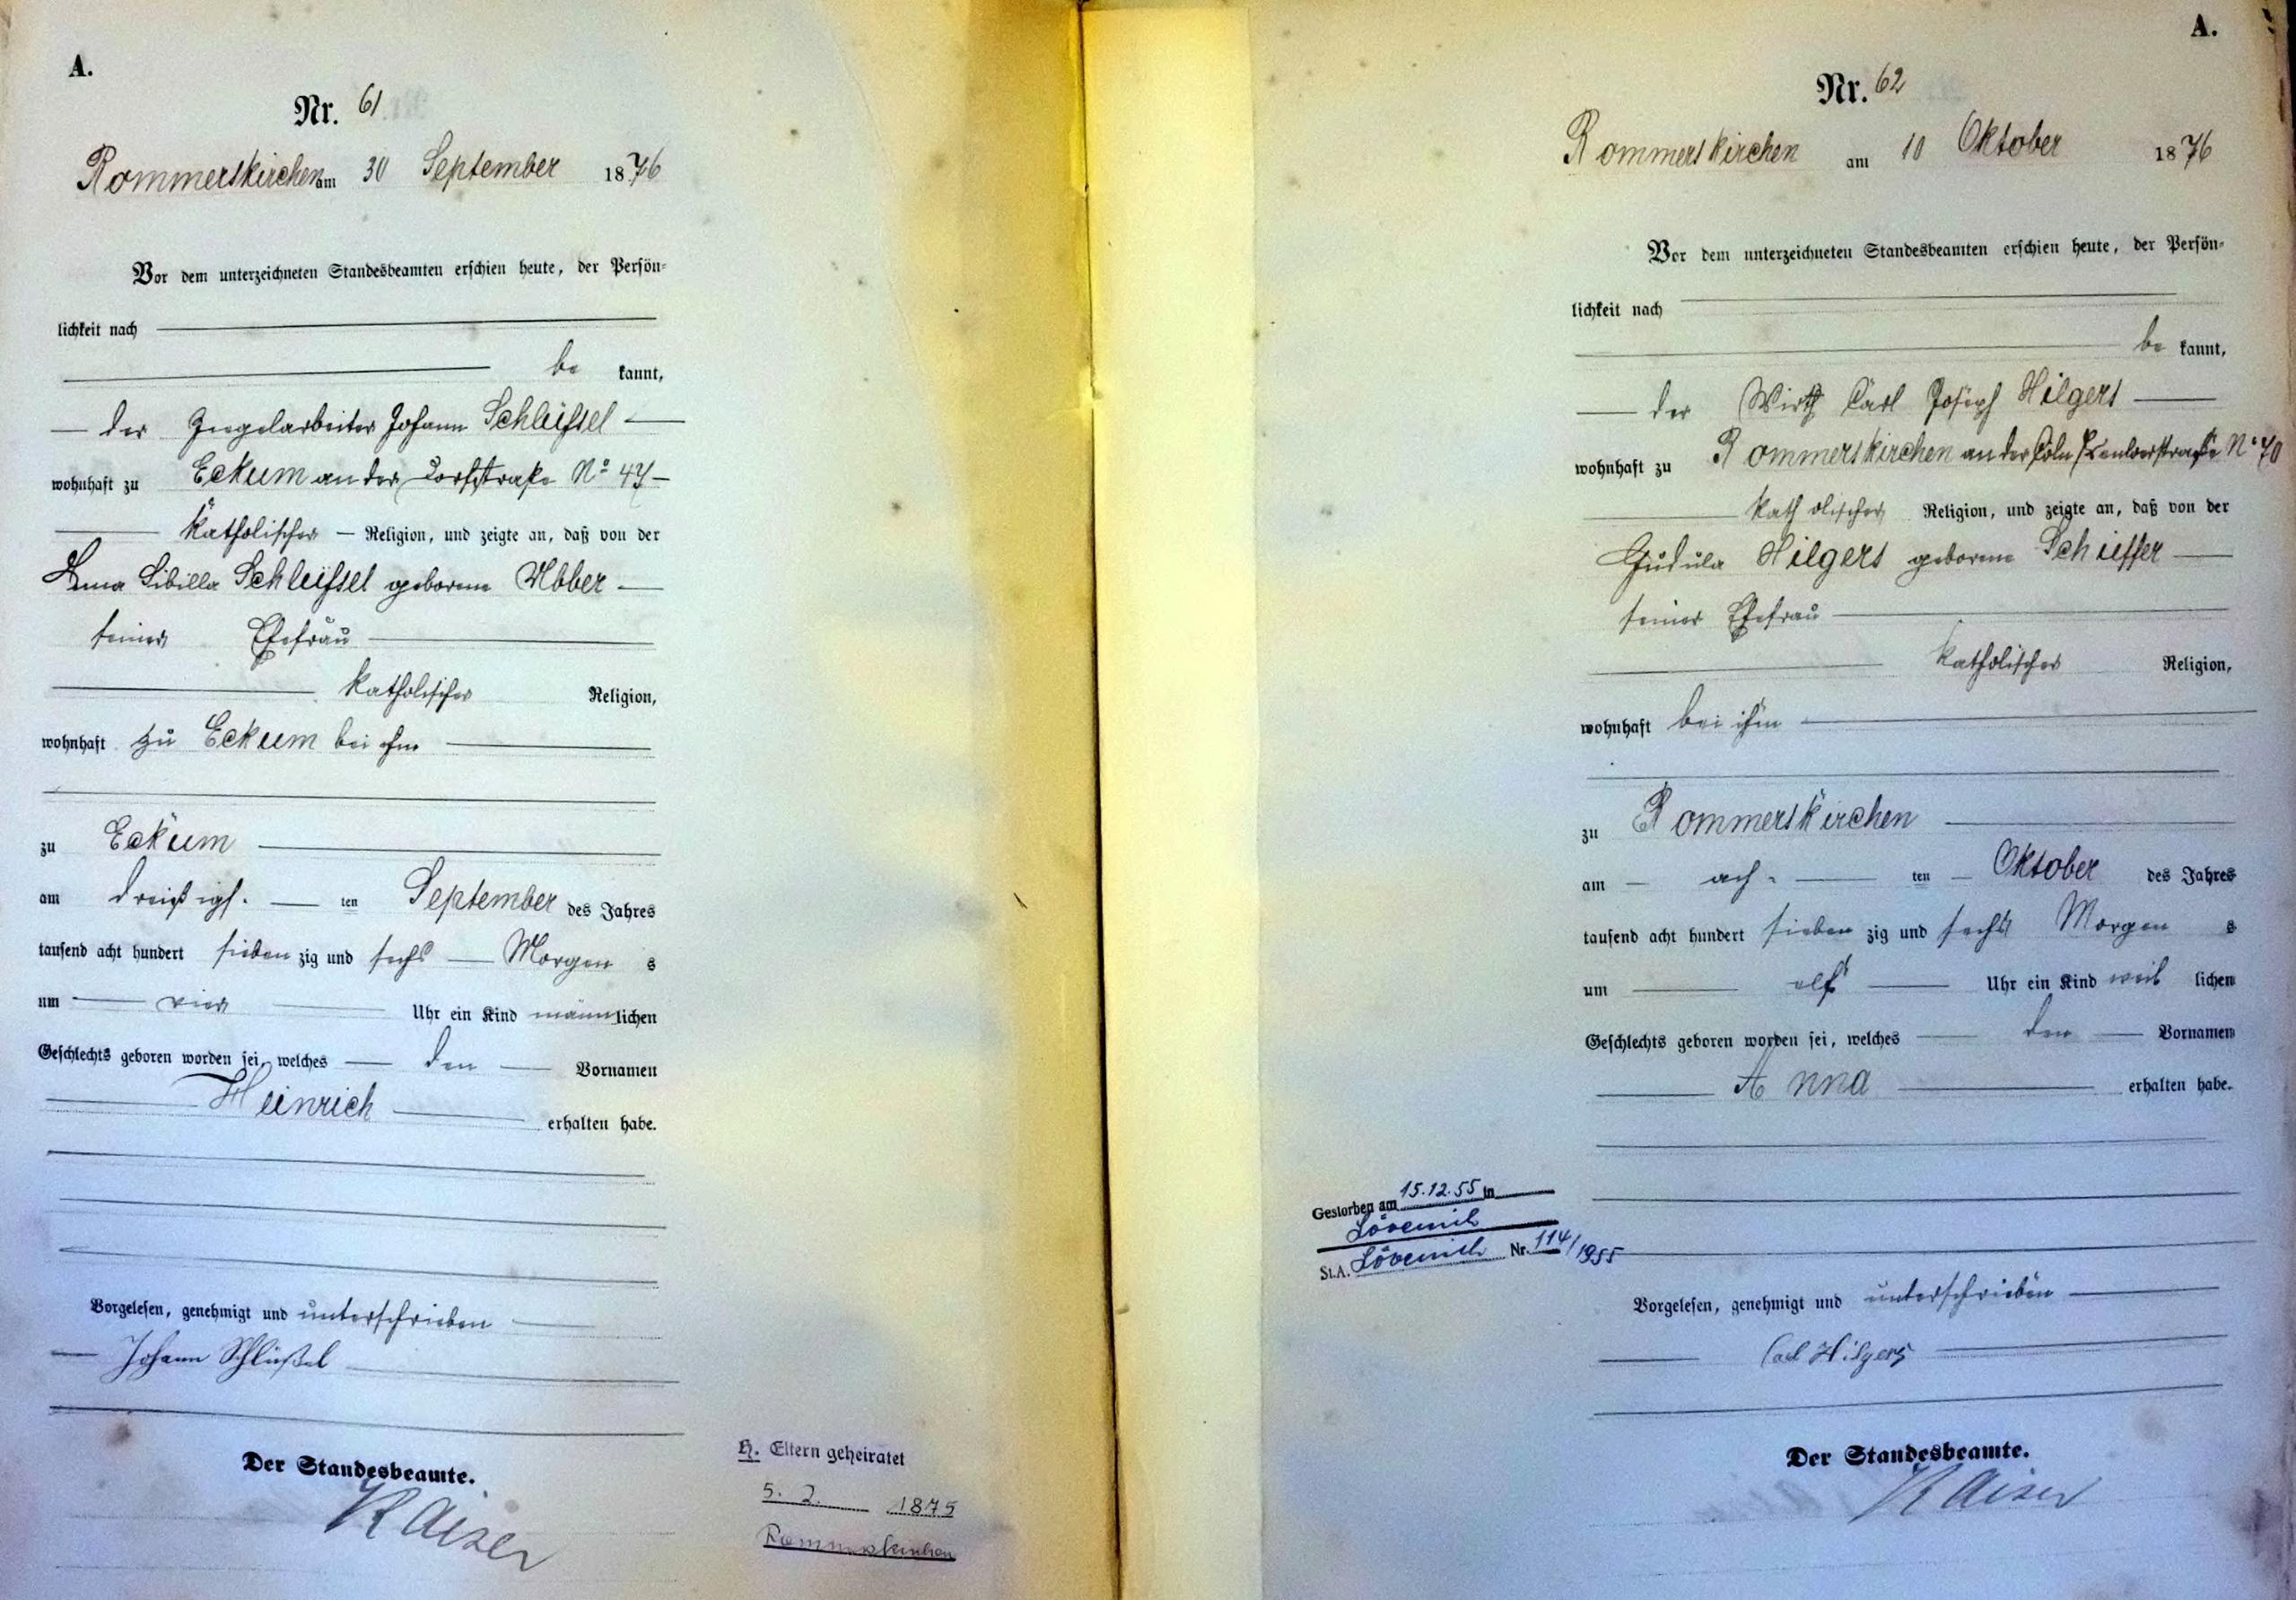 A.
Nr. 61
Rommerskirchen am 30 September 1876
Vor dem unterzeichneten Standesbeamten erschien heute, der Persön-
lichkeit nach
be kannt,
der Ziegelarbeiter Johann Schlüssel
wohnhaft zu Eckum an der Dorfstraße No 47
katholischer Religion, und zeigte an, daß von der
Anna Sibilla Schlüssel geborene Ubber
seiner Ehefrau
katholischer Religion,
wohnhaft zu Eckum bei ihm
zu Eckum
am dreißigs- ten September des Jahres
tausend acht hundert sieben zig und sechs Morgen s
um vier Uhr ein Kind männ lichen
Geschlechts geboren worden sei, welches den Vornamen
Heinrich erhalten habe.
Vorgelesen, genehmigt und unterschrieben
Johann Schlüßel
Der Standesbeamte.
Kaiser
H. Eltern geheiratet
5. 2. 1875
Rommerskirchen
A.
Nr. 62
Rommerskirchen am 10 Oktober 1876
Vor dem unterzeichneten Standesbeamten erschien heute, der Persön-
lichkeit nach
be kannt,
der Wirth Carl Joseph Hilgers
wohnhaft zu Rommerskirchen an der Cöln Venloerstraße No 70
katholischer Religion, und zeigte an, daß von der
Gudula Hilgers geborene Schieffer
seiner Ehefrau
katholischer Religion,
wohnhaft bei ihm
zu Rommerskirchen
am ach- ten Oktober des Jahres
tausend acht hundert sieben zig und sechs Morgen s
um elf Uhr ein Kind weib lichen
Geschlechts geboren worden sei, welches den Vornamen
Anna erhalten habe.
Gestorben am 15.12.55 in
Lövenich
St.A. Lövenich Nr. 114/1955
Vorgelesen, genehmigt und unterschrieben
Carl Hilgers
Der Standesbeamte.
Kaiser